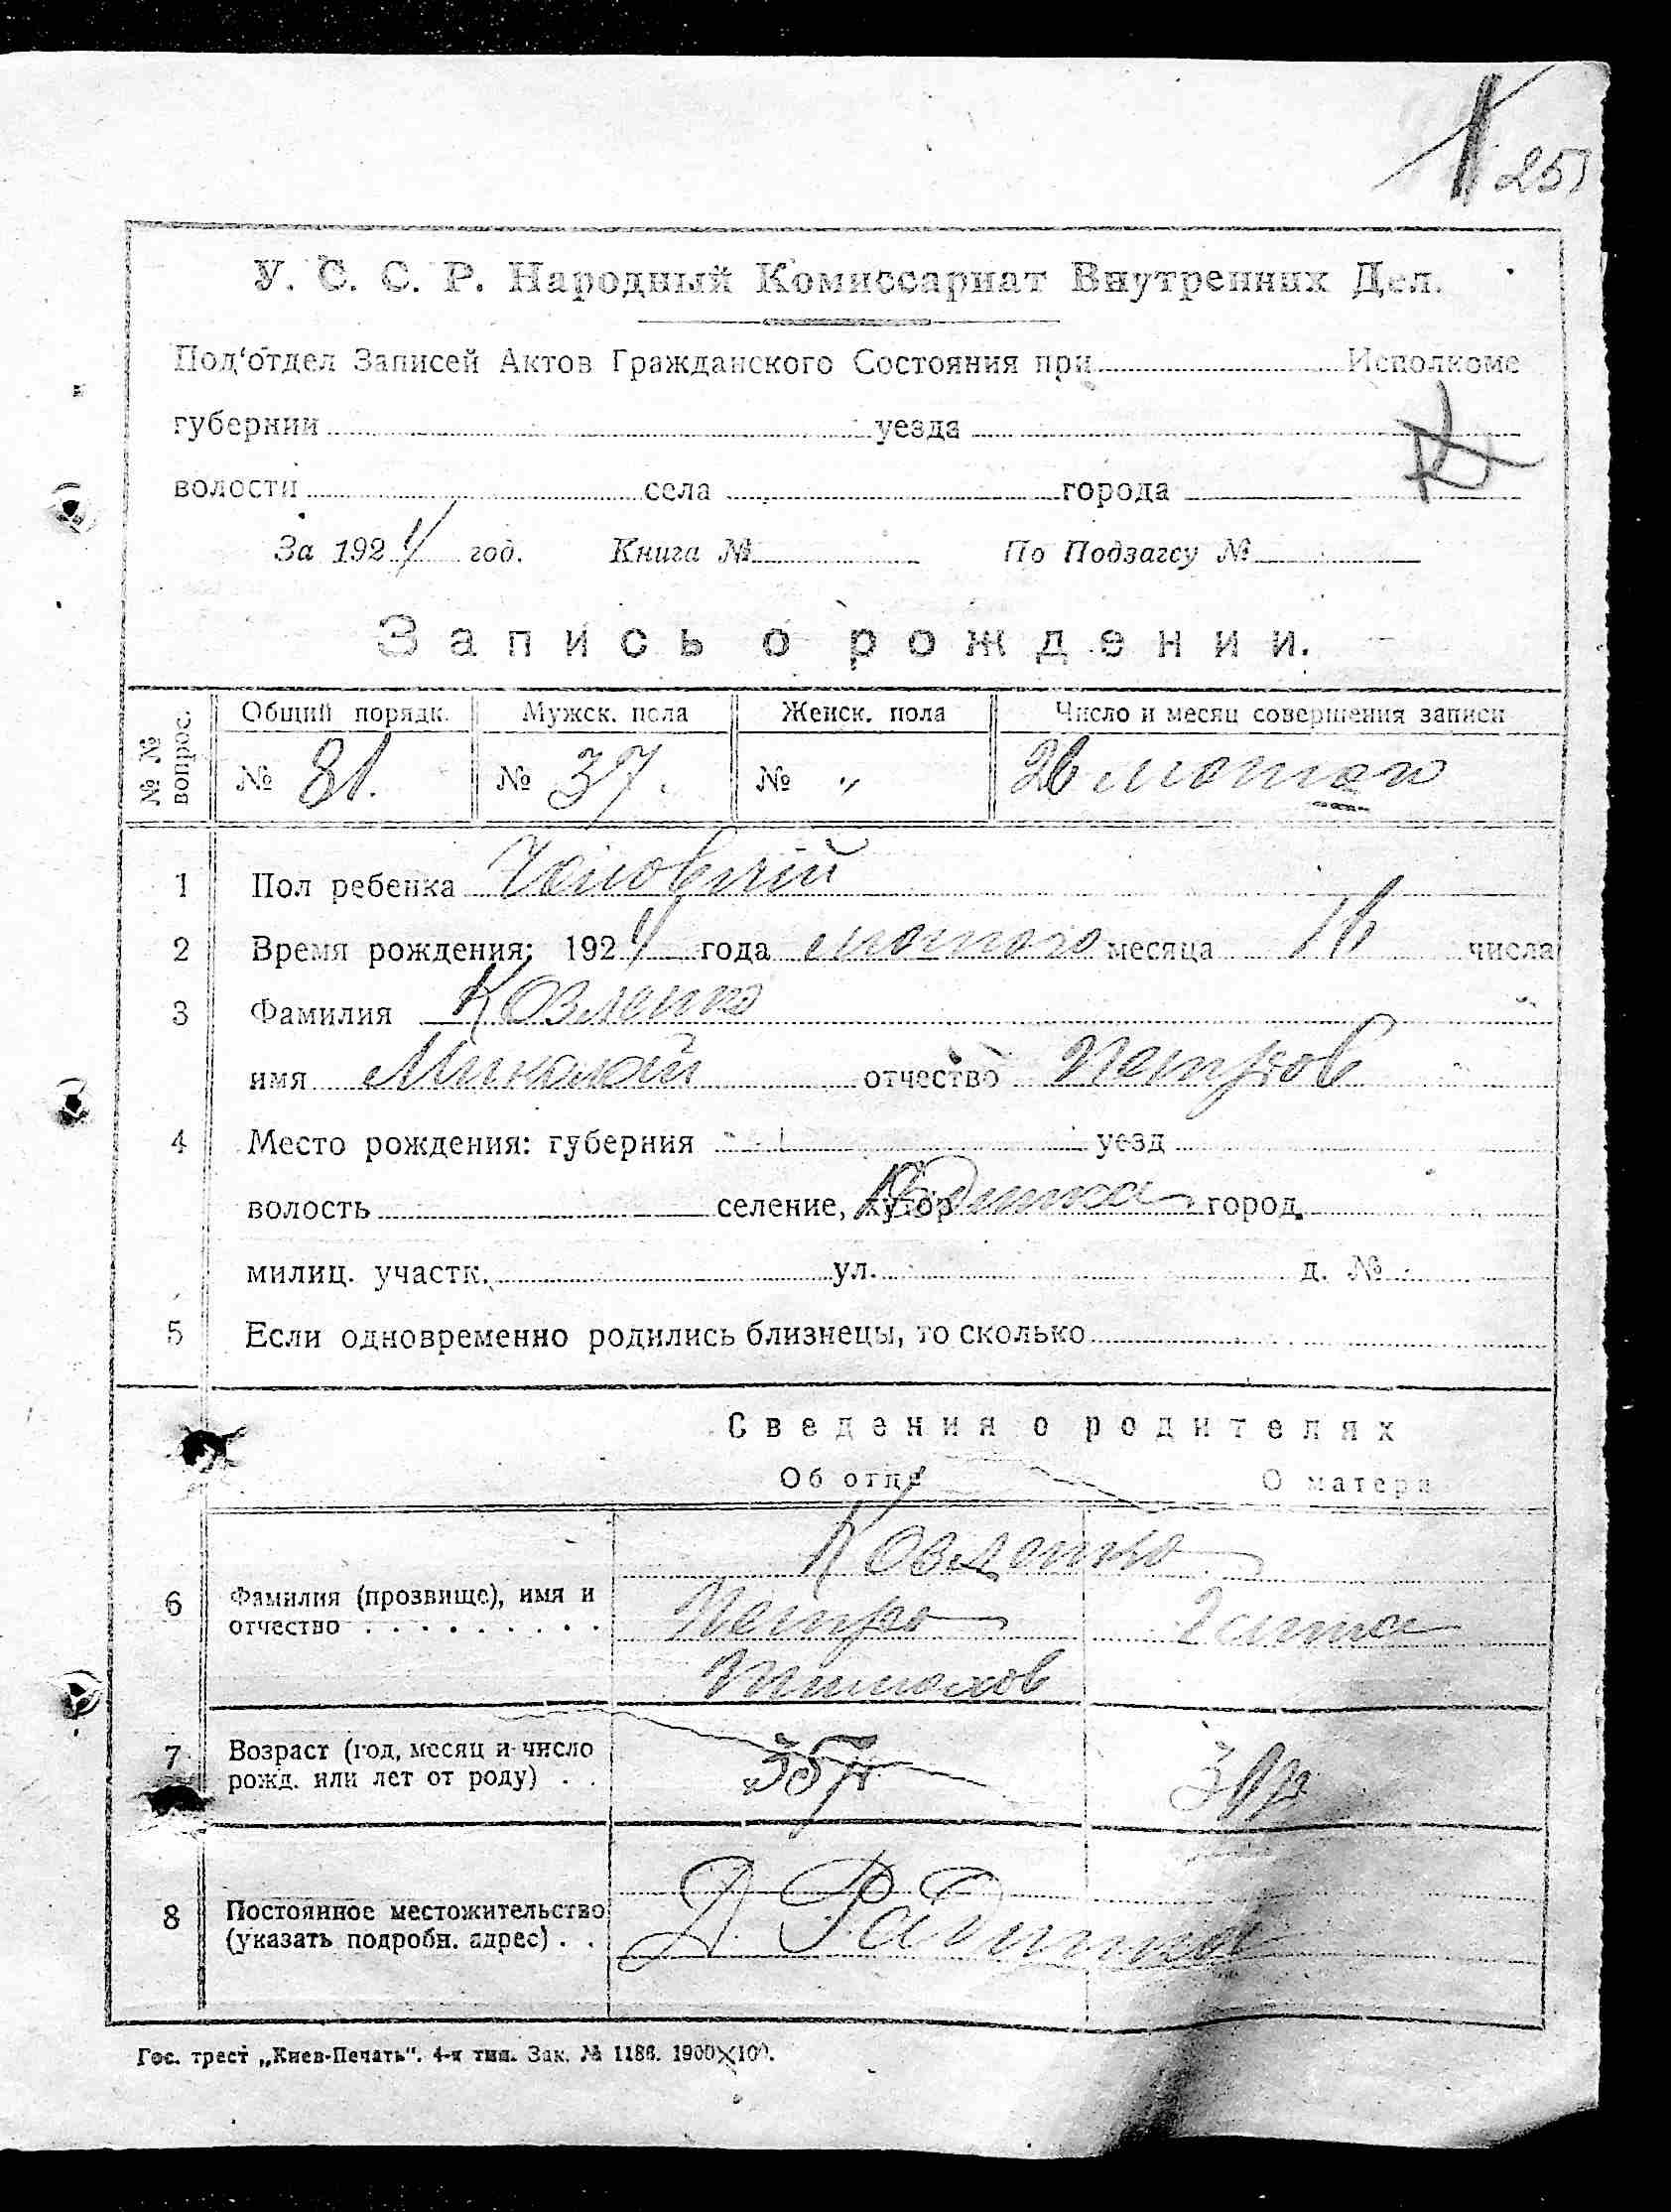 251
У. С. С. Р. Народный Комиссариат Внутренних Дел.
Под'отдел Записей Актов Гражданского Состояния при Исполкоме
губернии уезда
волости села города
За 1924 год. Книга № По Подзагсу №
Запись о рождении.
№ № вопрос. Общий порядк. Мужск. пола Женск. пола Число и месяц совершения записи
№ 81. № 37. № „ 26 лютого
1 Пол ребенка Чоловічій
2 Время рождения: 1924 года лютого месяца 16 числа
3 Фамилия Козленко
имя Миколай отчество Петров
4 Место рождения: губерния уезд
волость селение, хутор город
милиц. участк. ул. д. №
5 Если одновременно родились близнецы, то сколько
Сведения о родителях
Об отце О матери
Козленко
6 Фамилия (прозвище), имя и
отчество Петро Ганна
7 Возраст (год, месяц и число
рожд. или лет от роду) 35 30
8 Постоянное местожительство
(указать подробн. адрес)
Гос. трест „Киев-Печать“. 4-я тип. Зак. № 1186. 1900×100.